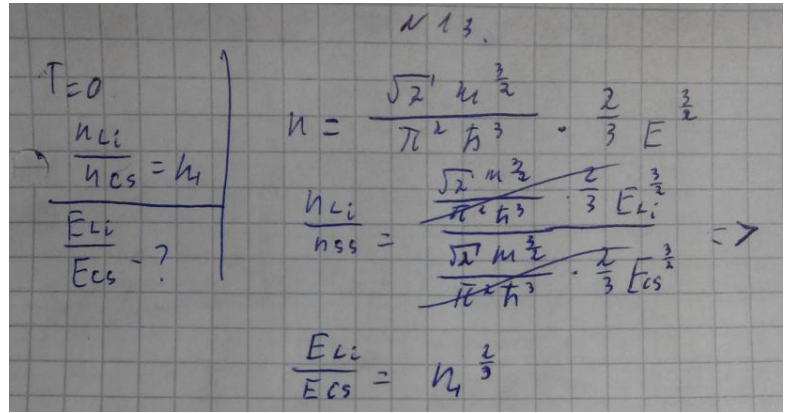 N 13.
T=0
n_Li / n_Cs = n_1
E_Li / E_Cs - ?
n = (√2 m^(3/2)) / (π^2 ħ^3) · 2/3 E^(3/2)
n_Li / n_ss = ((√2 m^(3/2)) / (π^2 ħ^3) · 2/3 E_Li^(3/2)) / ((√2 m^(3/2)) / (π^2 ħ^3) · 2/3 E_Cs^(3/2)) =>
E_Li / E_Cs = n_1^(2/3)